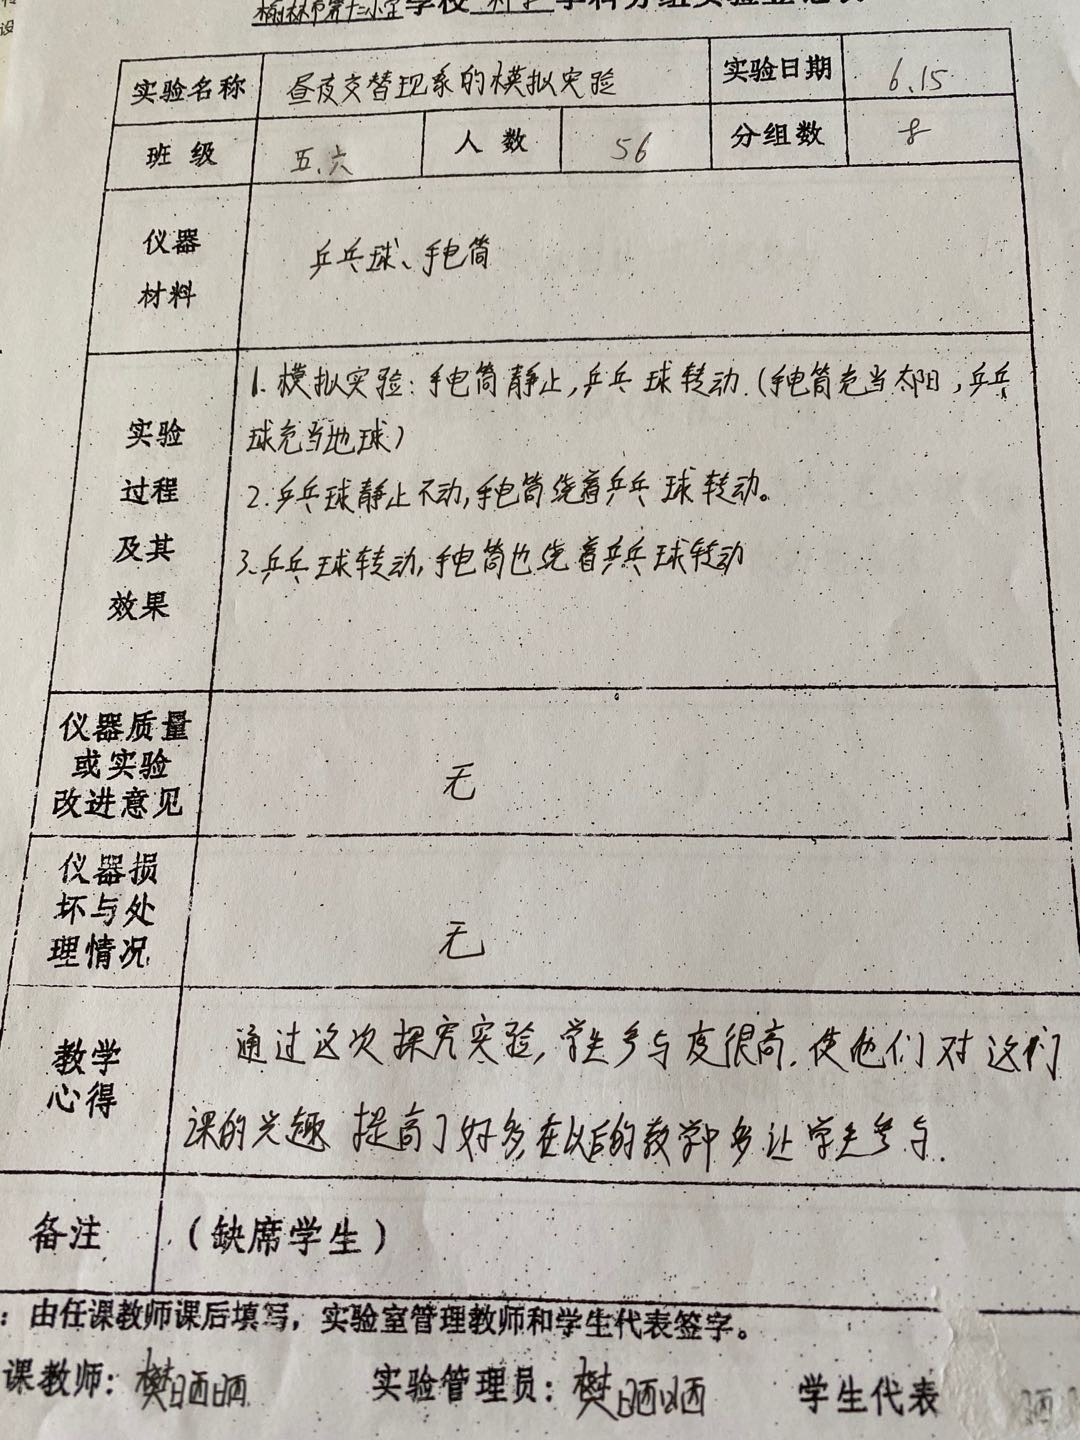 榆林市第十二小学学校 科学 学科分组实验登记表
实验名称 昼夜交替现系的模拟实验 实验日期 6.15
班级 五.六 人数 56 分组数 8
仪器
材料
乒乓球、手电筒
实验
过程
及其
效果
1. 模拟实验:手电筒静止,乒乓球转动.(手电筒充当太阳,乒乓
球充当地球)
2.乒乓球静止不动,手电筒绕着乒乓球转动。
3.乒乓球转动,手电筒也绕着乒乓球转动
仪器质量
或实验
改进意见
无
仪器损
坏与处
理情况
无
教学
心得
通过这次探究实验,学生参与度很高.使他们对这们
课的兴趣提高了好多,在以后的教学中多让学生参与.
备注 (缺席学生)
:由任课教师课后填写,实验室管理教师和学生代表签字。
课教师:樊晒晒 实验管理员:樊晒晒 学生代表